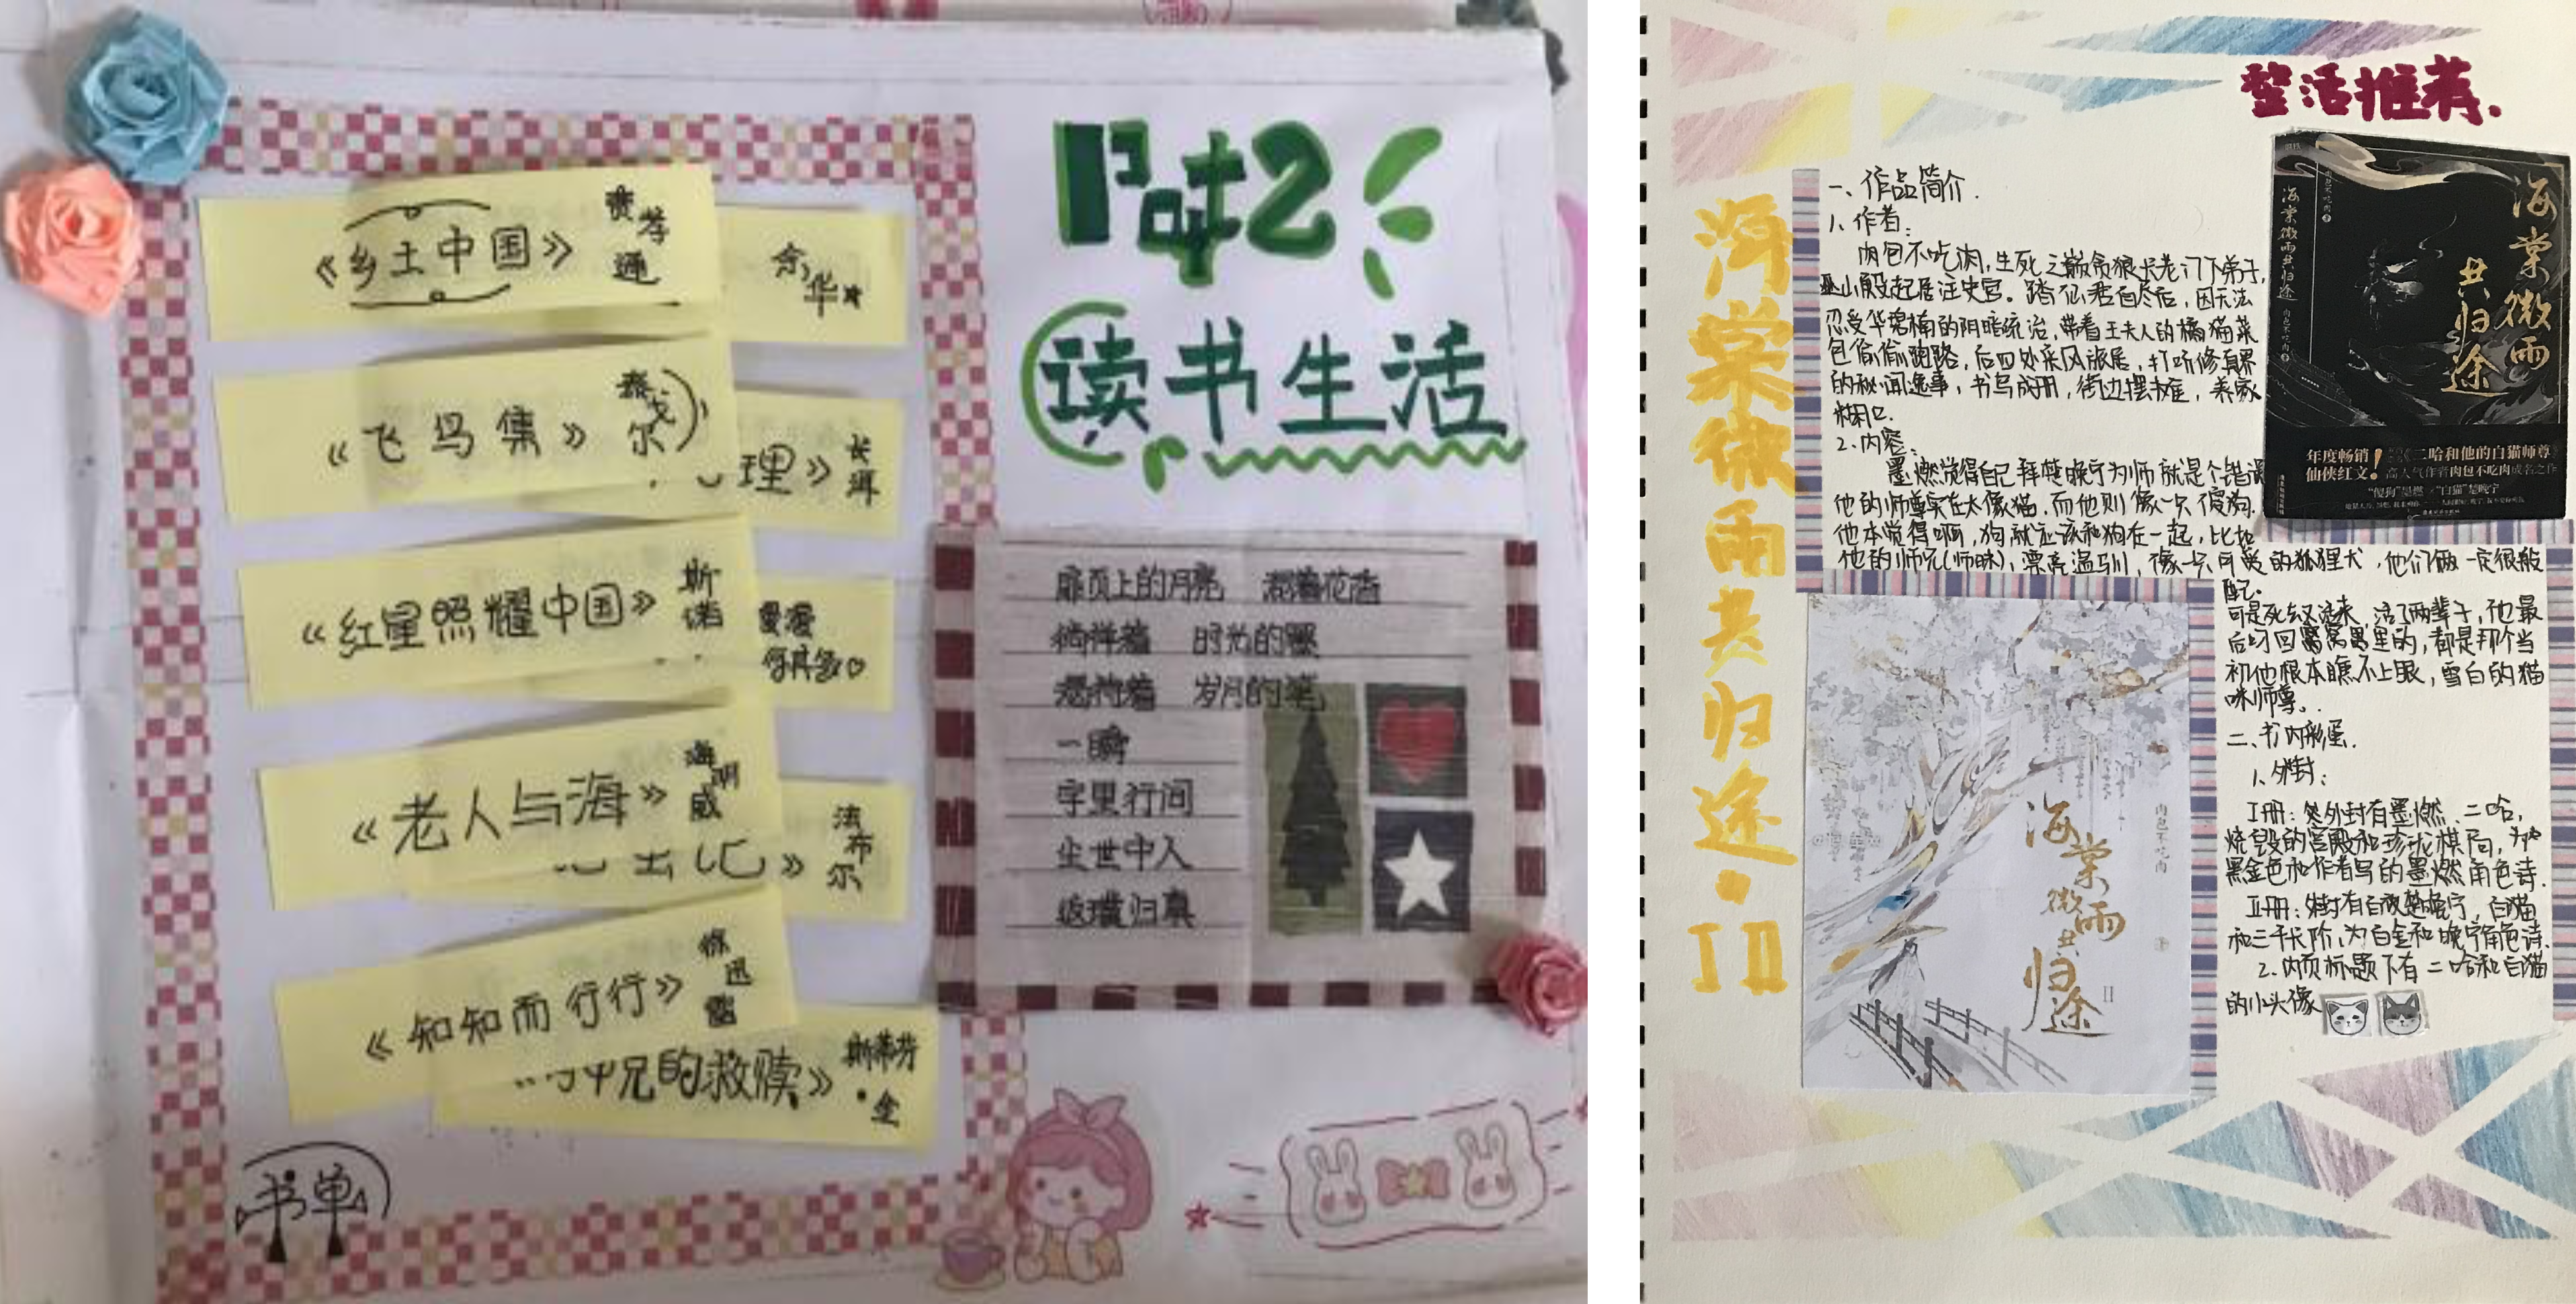 《乡土中国》 费孝通
余华
《飞鸟集》 泰戈尔
理》 长洱
《红星照耀中国》 斯诺
曼漫
何其多
《老人与海》 海明威
法布尔
《知知而行行》 徐迅雷
的救赎》 斯蒂芬·金
书单
Part2
读书生活
扉页上的月亮 混着花香
徜徉着 时光的
岁月的
一瞬
字里行间
尘世中人
返璞归真
整活推荐.
海棠微雨共归途·I II
一、作品简介.
1.作者:
肉包不吃肉,生死之巅贪狼长老门下弟子,
巫山殿起居注史官。踏仙君自尽后,因无法
忍受华碧楠的阴暗统治,带着王夫人的橘猫菜
包偷偷跑路,后四处采风旅居,打听修真界
的秘闻逸事,书写成册,街边摆摊,养家
糊口.
2.内容:
墨燃觉得自己拜楚晚宁为师就是个错误
他的师尊实在太像猫,而他则像一只傻狗.
他本觉得啊,狗就应该和狗在一起,比如
他的师兄(师昧),漂亮温驯,像一只可爱的狐狸犬,他们俩一定很般
配.
可是死去又活来,活了两辈子,他最
后叼回窝窝里的,都是那个当
初他根本瞧不上眼,雪白的猫
咪师尊.
二、书内彩蛋.
1.外封:
I册:外封有墨燃、二哈,
烧毁的宫殿和珍珑棋局,为
黑金色和作者写的墨燃角色诗.
II册:外封有白衣楚晚宁,白猫
和三千长阶,为白金和晚宁角色诗.
2.内页标题下有二哈和白猫
的小头像
海棠微雨共归途
肉包不吃肉
海棠微雨
共归途
年度畅销!《二哈和他的白猫师尊
仙侠红文! 高人气作者肉包不吃肉成名之作
“傻狗”墨燃×“白猫”楚晚宁
海棠微雨共归途
II
肉包不吃肉